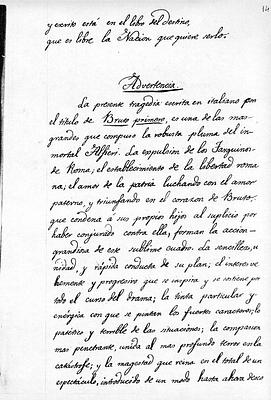 14
y escrito está en el libro del destino,
que es libre la Nacion que quiere serlo.
Advertencia.
La presente tragedia escrita en italiano con
el título de Bruto primero, es una de las mas
grandes que compuso la robusta pluma del in-
mortal Alfieri. La expulsion de los Tarquinos
de Roma; el establecimiento de la libertad roma
na; el amor de la patria luchando con el amor
paterno, y triunfando en el corazon de Bruto,
que condena á sus propios hijos al suplicio por
haber conjurado contra ella, forman la accion
grandiosa de este sublime cuadro. La sencillez, u
nidad, y rápida conducta de su plan; el interes ve
hemente y progresivo que se inspira y se sostiene por
todo el curso del drama; la tinta particular y
enérgica con que se pintan los fuertes caracteres; lo
patético y terrible de las situaciones; la compasion
mas penetrante, unida al mas profundo terror en la
catástrofe; y la magestad que reina en el total de un
espectáculo, introducido de un modo hasta ahora desco